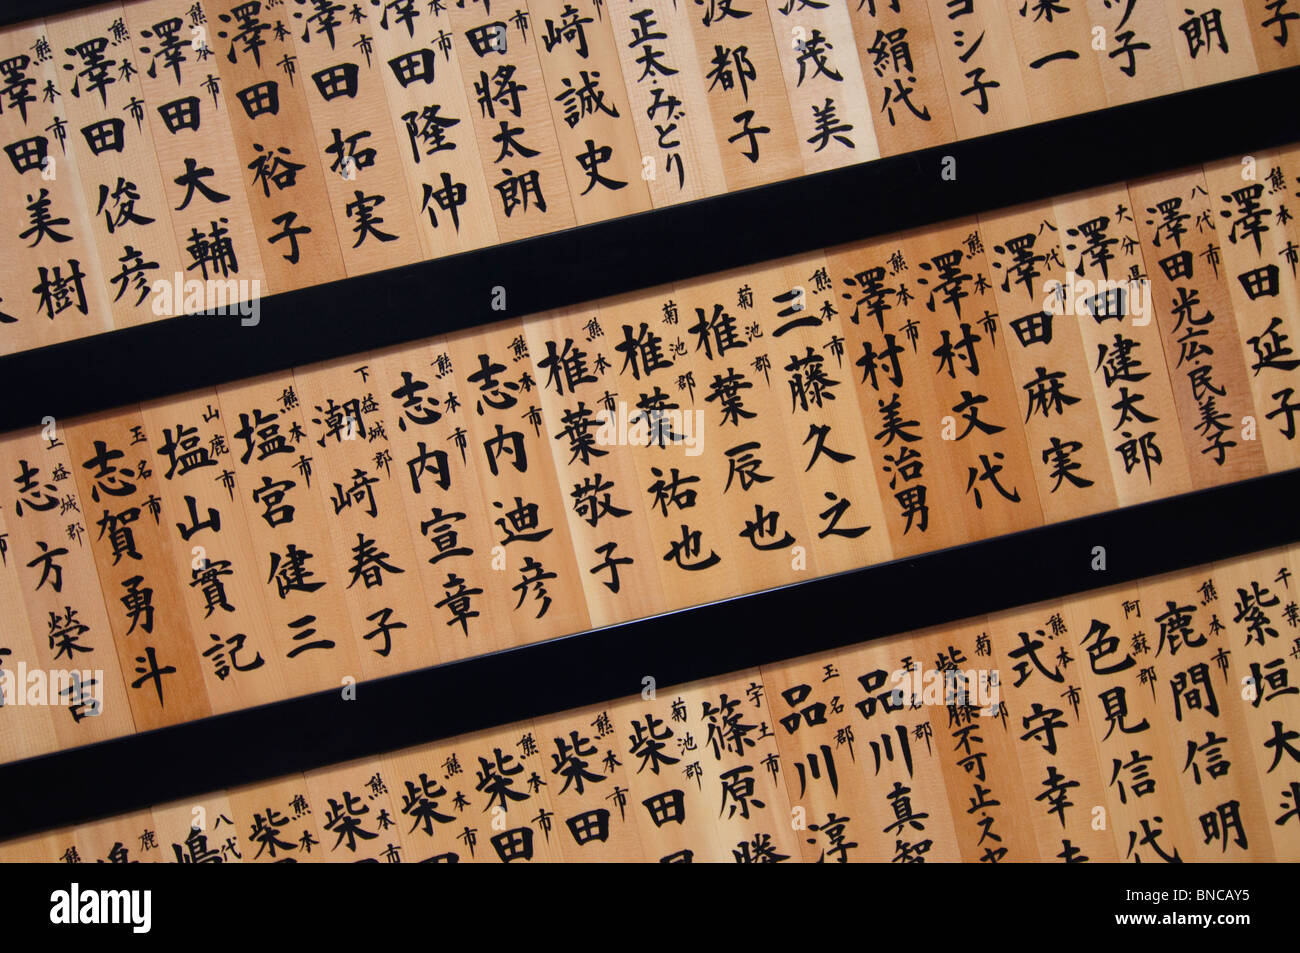 子
朗
ツ子
深一
ヨシ子
村絹代
波茂美
波都子
正太・みどり
﨑誠史
田将太朗
田隆伸
熊本市 澤田拓実
熊本市 澤田裕子
熊本市 澤田大輔
熊本市 澤田俊彦
熊本市 澤田美樹
熊本市 澤田延子
八代市 澤田光広 民美子
大分県 澤田健太郎
八代市 澤田麻実
熊本市 澤村文代
熊本市 澤村美治男
熊本市 三藤久之
菊池郡 椎葉辰也
菊池郡 椎葉祐也
熊本市 椎葉敬子
熊本市 志内迪彦
熊本市 志内宣章
下益城郡 潮﨑春子
熊本市 塩宮健三
山鹿市 塩山實記
玉名市 志賀勇斗
上益城郡 志方榮吉
千葉県 紫垣大斗
熊本市 鹿間信明
阿蘇郡 色見信代
熊本市 式守幸
菊池郡 柴藤不可止
玉名郡 品川真智
玉名郡 品川淳
宇土市 篠原勝
菊池郡 柴田
熊本市 柴田
熊本市 柴田
熊本市 柴
熊本市 柴
熊本 柴
八代 嶋
鹿
alamy
Image ID: BNCAY5
www.alamy.com